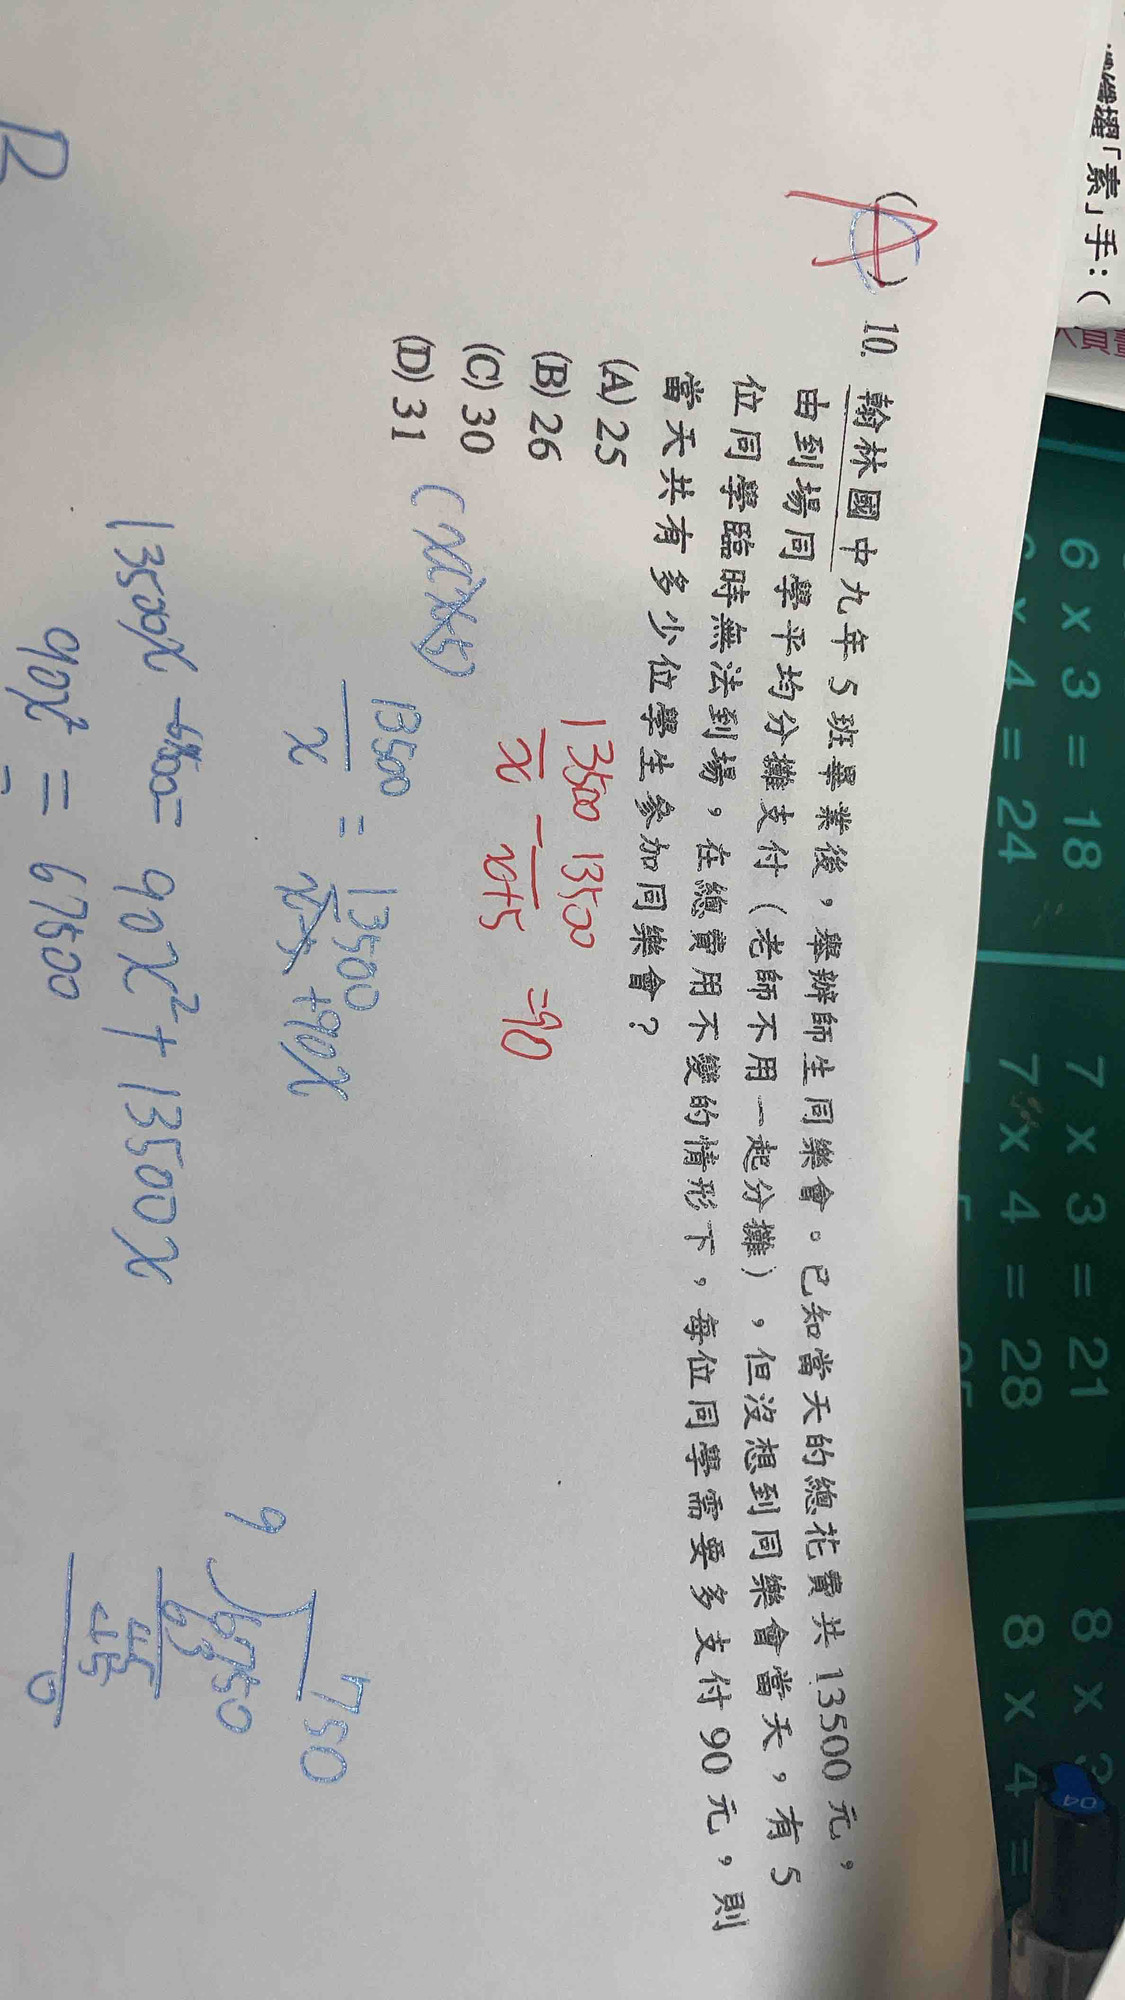 機擢「素」手：（
(A) 10. 翰林國中九年5班畢業後，舉辦師生同樂會。已知當天的總花費共13500元，
由到場同學平均分攤支付（老師不用一起分攤），但沒想到同樂會當天，有5
位同學臨時無法到場，在總費用不變的情形下，每位同學需要多支付90元，則
當天共有多少位學生參加同樂會？
(A) 25
(B) 26
(C) 30
(D) 31
13500/x - 13500/x+5 = 90
(x)(x+5)
13500/x = 13500/x+5 + 90x
= 90x² + 13500x
90x² = 67500
750
9 6750
63
45
45
0
6 x 3 = 18
7 x 3 = 21
8 x 3
x 4 = 24
7 x 4 = 28
8 x 4 =
04